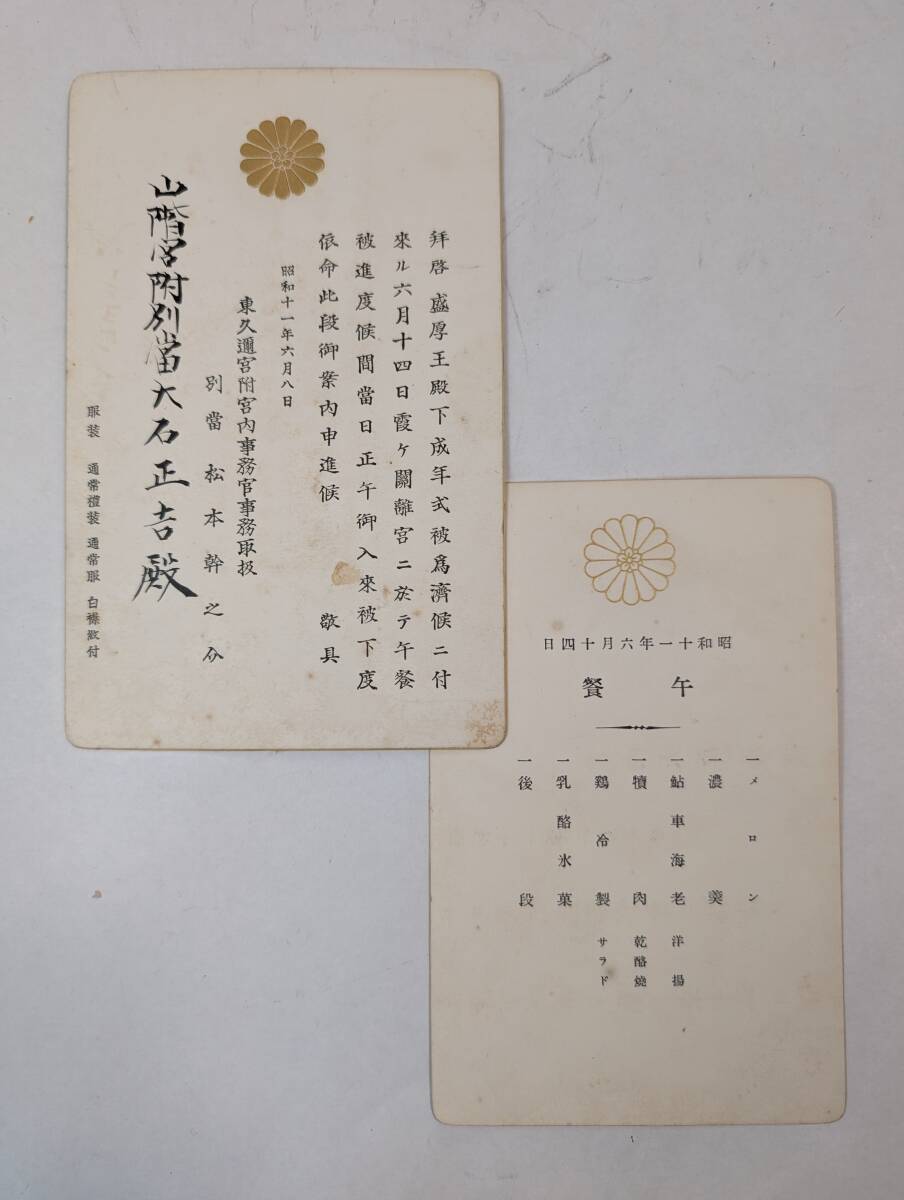 拜啓盛厚王殿下成年式被爲濟候ニ付
來ル六月十四日霞ケ關離宮ニ於テ午餐
被進度候間當日正午御入來被下度
依命此段御案內申進候 敬具
昭和十一年六月八日
東久邇宮附宮內事務官事務取扱
別當 松本幹之介
山階宮附別當大石正吉殿
服裝 通常禮裝 通常服 白襟紋付
日四十月六年一十和昭
餐午
一メロン
一濃羹
一鮎車海老洋揚
一犢肉乾酪燒
一鶏冷製サラド
一乳酪氷菓
一後段